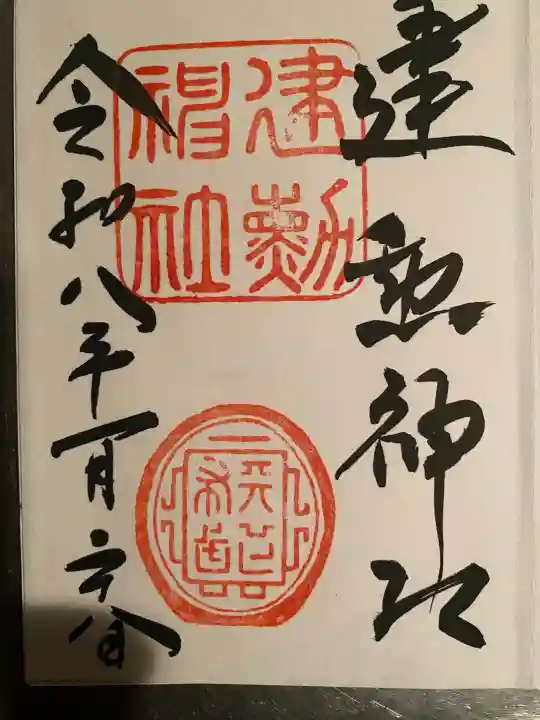 建勲神社
建勲
神社
令和八年一月六日